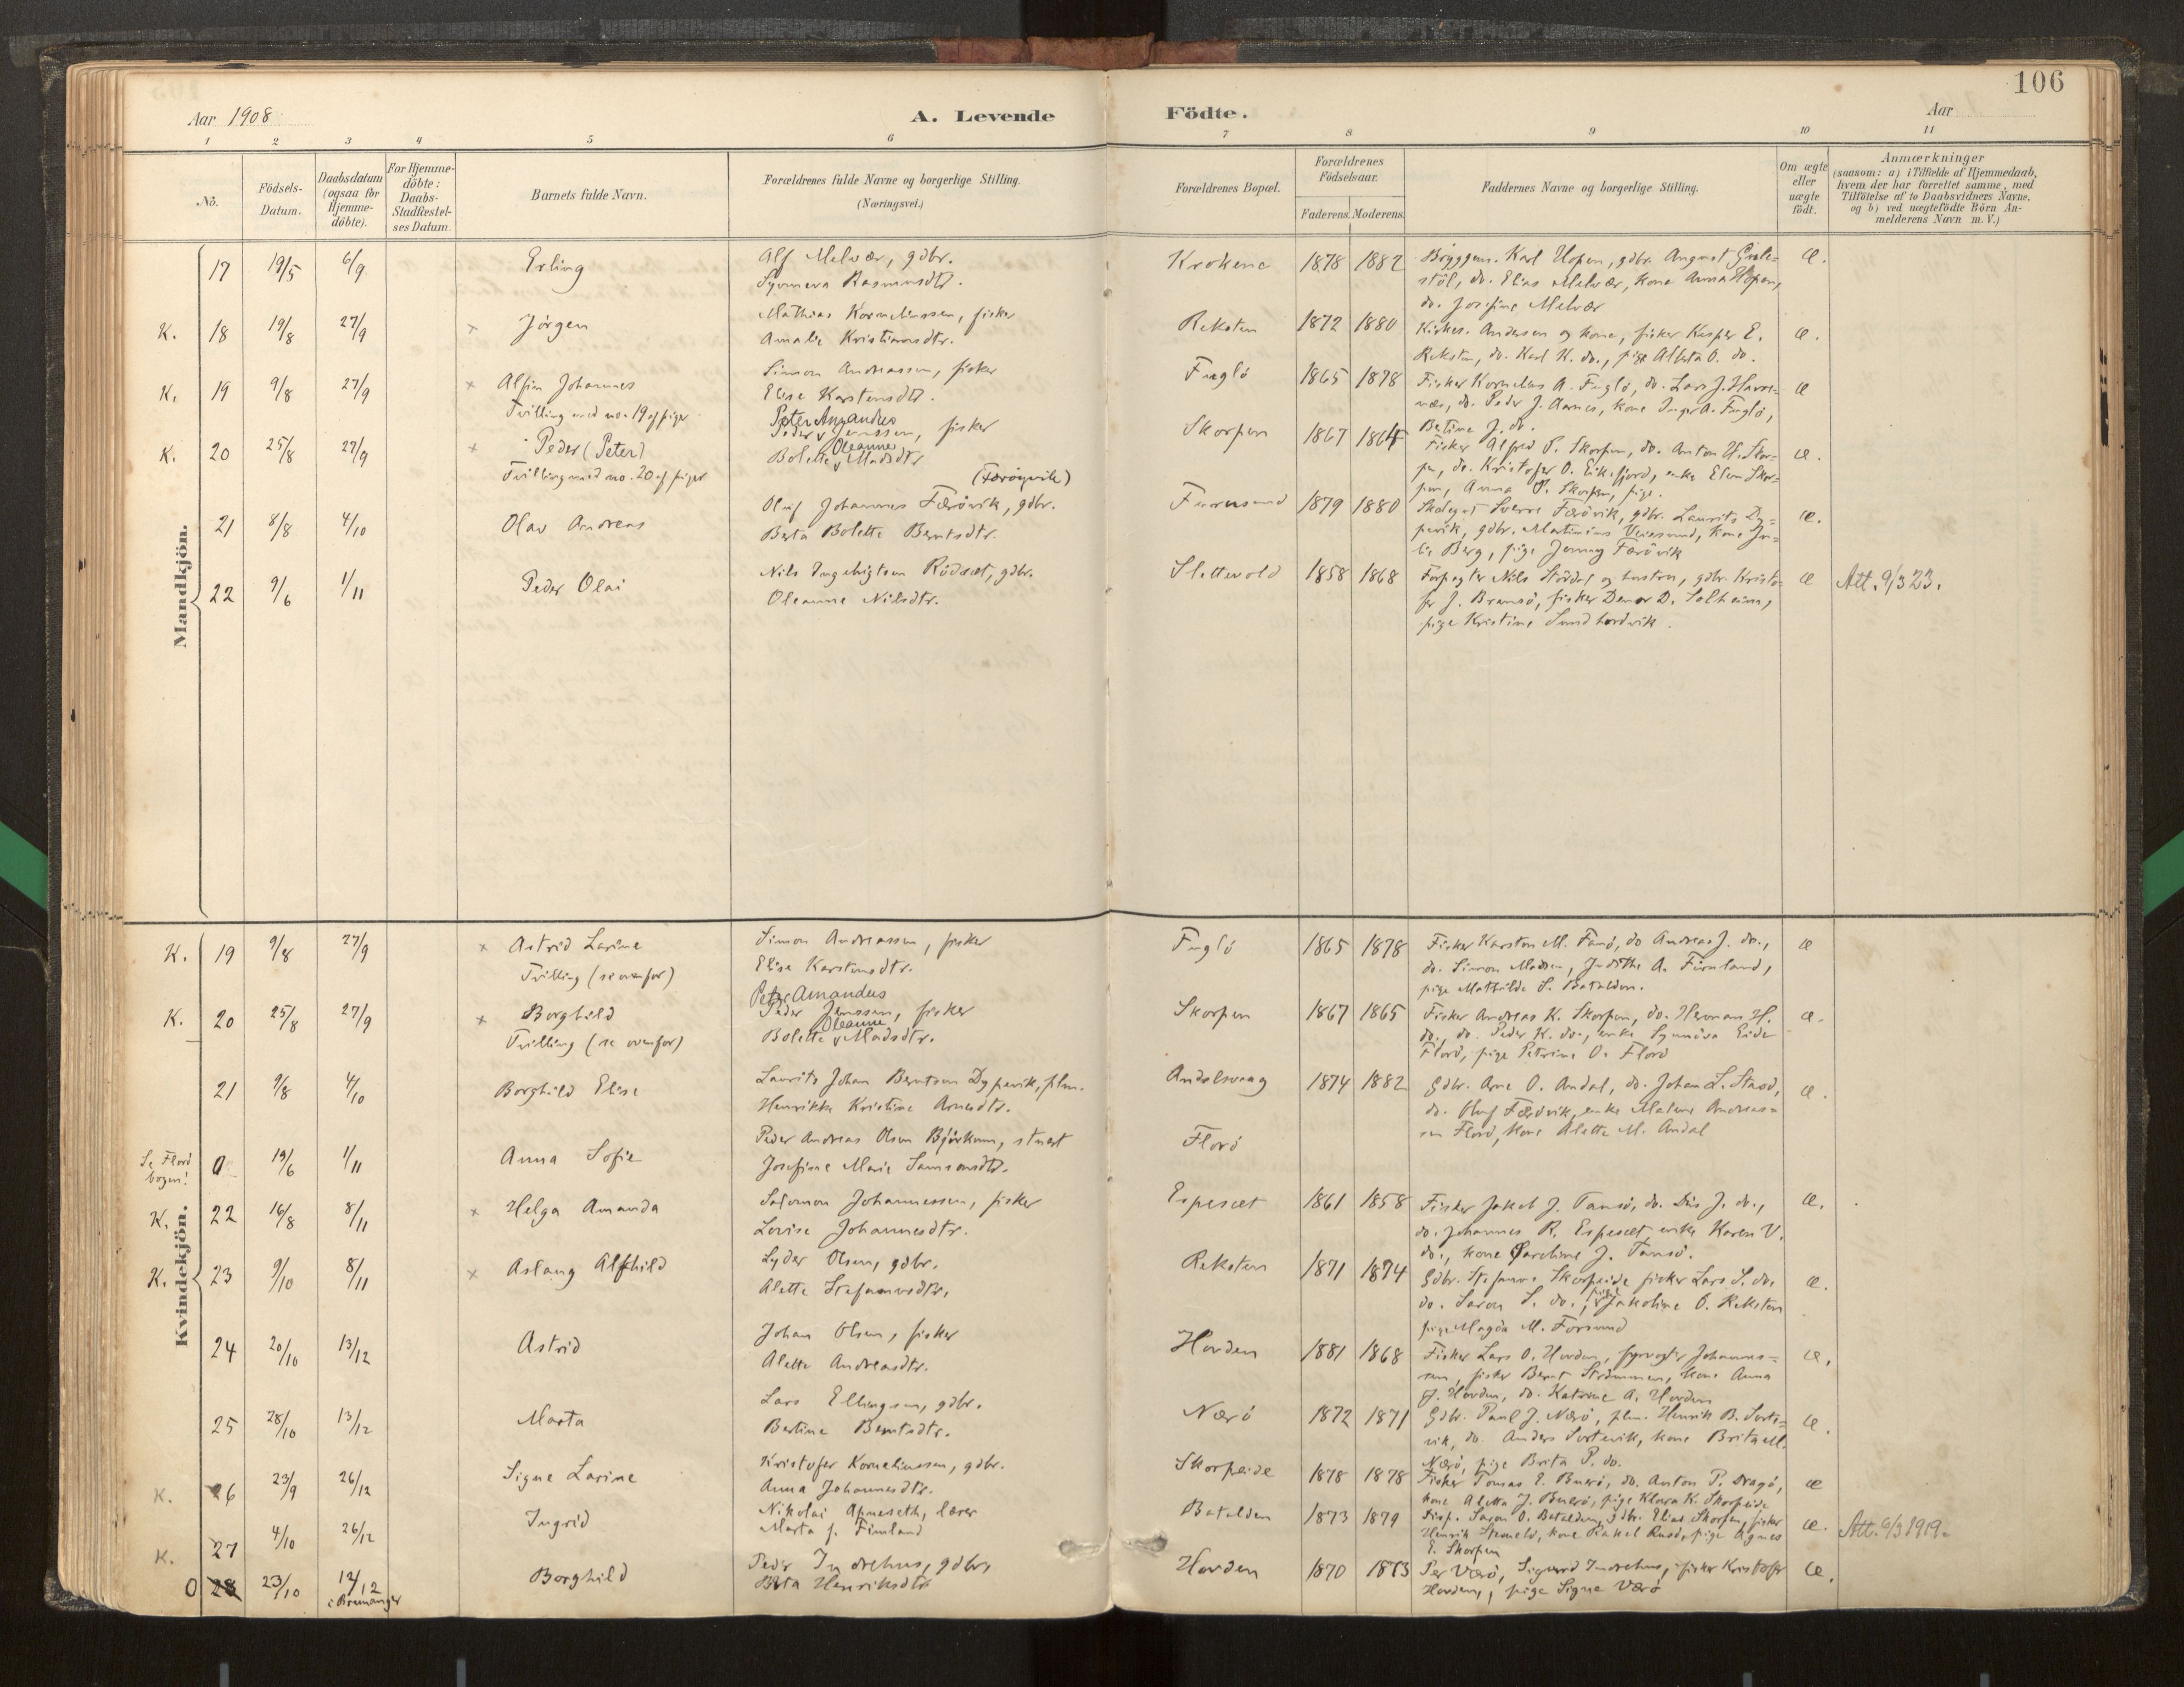 106
Aar 1908
A. Levende Födte.
Aar
1 2 3 4 5 6 7 8 9 10 11
No.
Födsels-Datum.
Daabsdatum (ogsaa for Hjemme-döbte).
For Hjemme-döbte: Daabs-Stadfæstel-ses Datum.
Barnets fulde Navn.
Forældrenes fulde Navne og borgerlige Stilling.
(Næringsvei.)
Forældrenes Bopæl.
Forældrenes Födselsaar.
Faderens. Moderens.
Faddernes Navne og borgerlige Stilling.
Om ægte eller uægte födt.
Anmærkninger
(saasom: a) i Tilfælde af Hjemmedaab,
hvem der har forrettet samme, med
Tilföielse af to Daabsvidners Navne,
og b) ved uægtefödte Börn An-
melderens Navn m. V.)
Mandkjön.
17 19/5 6/9 Erling
Alf Melvær, gdbr.
Synneva Rasmusdtr.
Krokene 1878 1882
Karl Hopen, gdbr. August
støl, do. Elias Melvær, kone Anna Hopen,
do. Josefine Melvær
æ.
K. 18 19/8 27/9 × Jörgen
Mathias Korneliussen, fisker
Amalie Kristiansdtr.
Reksten 1872 1880
Kirkes. Andersen og kone, fisker Kasper E.
Reksten, do. Karl K. do., pige Alberta O. do.
æ.
K. 19 9/8 27/9 × Alfin Johannes
Tvilling med no. 19 af piger
Simon Andreassen, fisker
Elise Karstensdtr.
Fuglö 1865 1878
Fisker Kornelius A. Fuglö, do. Lars J.
vær, do. Peder J. Aarnes, kone Inger A. Fuglö,
Betine J. do.
æ
K. 20 25/8 27/9 × Peder (Peter)
Tvilling med no. 20 af piger
Peter Amandus
Peder Jenssen, fisker
Oleanne
Bolette Madsdtr
Skorpen 1867 1864
Fisker Alfred P. Skorpen, do. Anton H. Skor-
pen, do. Kristofer O. Eikefjord, enke Elen Skor-
pen, Anna P. Skorpen, pige.
æ.
21 8/8 4/10 Olav Andreas
(Færöyvik)
Oluf Johannes Færövik, gdbr.
Berta Bolette Berntsdtr.
1879 1880
Sverre Færövik, gdbr. Laurits Dy-
pevik, gdbr. Martinius kone Ju-
lie Berg, pige Jenny Færövik
æ.
22 9/6 1/11 Peder Olai
Nils Ingebrigtsen Rödsæt, gdbr.
Oleanne Nilsdtr.
Slettevold 1858 1868
Forpagter Nils Stördal og hustru, gdbr. Kristo-
fer J. Bremsö, fisker D. Solheim,
pige Kristine
æ Att. 9/3 23.
Kvindekjön.
K. 19 9/8 27/9 × Astrid Larine
Tvilling (se ovenfor)
Simon Andreassen, fisker
Elise Karstensdtr.
Fuglö 1865 1878
Fisker Karsten M. Fanö, do Andreas J. do.,
do. Simon Madsen, Judithe A.
pige Mathilde S. Batalden.
æ
K. 20 25/8 27/9 × Borghild
Tvilling (se ovenfor)
Peter Amandus
Peder Jenssen, fisker
Oleanne
Bolette Madsdtr.
Skorpen 1867 1865
Fisker Andreas K. Skorpen, do. Herman H.
do., do. Peder K. do., enke Synnöva Eide
Florö, pige Petrine O. Florö
æ.
21 9/8 4/10 Borghild Elise
Laurits Johan Berntsen Dypevik, plm.
Henrikke Kristine Arnesdtr.
Andalsvaag 1874 1882
Gdbr. Arne O. Andal, do. Johan L.
do. Oluf Færövik, enke Malene Andreas-
sen Florö, kone Alette M. Andal
æ.
Se Florö bogen! 0 19/6 1/11 Anna Sofie
Peder Andreas Olsen Björkum, stuert
Josefine Marie Samsonsdtr.
Florö
K. 22 16/8 8/11 × Helga Amanda
Salomon Johannessen, fisker
Lovise Johannesdtr.
Espeset 1861 1858
Fisker Jakob J. Tansö, do. J. do.,
do. Johannes R. Espeset, enke Karen V.
do., kone Karoline J. Tansö.
æ.
K. 23 9/10 8/11 × Aslaug Alfhild
Lyder Olsen, gdbr.
Alette Stefanusdtr.
Reksten 1871 1874
Gdbr. Stefanus Skorpeide fisker Lars S. do.
do. Saron S. do., pige Jakoline O. Reksten
pige Magda M. Forsund
æ.
24 20/10 13/12 Astrid
Johan Olsen, fisker
Alette Andreasdtr.
Hovden 1881 1868
Fisker Lars O. Hovden, fyrvogter Johannes-
sen, fisker Bernt Strömmen, kone Anna
J. Hovden, do. Katrine A. Hovden
æ.
25 28/10 13/12 Marta
Lars Ellingsen, gdbr.
Bertine Berntsdtr.
Nærö 1872 1871
Gdbr. Paul J. Nærö, plm. Henrik B. Sorte-
vik, do. Anders Sortevik, kone Brita M.
Nærö, pige Brita P. do.
æ.
K. 26 23/9 26/12 Signe Larine
Kristofer Korneliussen, gdbr.
Anna Johannesdtr.
Skorpeide 1878 1878
Fisker Tomas E. Buerö, do. Anton P. Dragö,
kone Aletta J. Buerö, pige Klara K. Skorpeide
æ
K. 27 4/10 26/12 Ingrid
Nikolai Apneseth, lærer
Marta J. Fimland
Batalden 1873 1879
Saron O. Batalden, gdbr. Elias Skorpen, fisker
Henrik kone Rakel pige Agnes
E. Skorpen
æ. Att. 6/3 1919.
0 28 23/10 12/12 i Bremanger Borghild
Peder Indrehus, gdbr,
Berta Henriksdtr
Hovden 1870 1873
Per Værö, Sigurd Indrehus, fisker Kristoffer
Hovden, pige Signe Værö
æ.